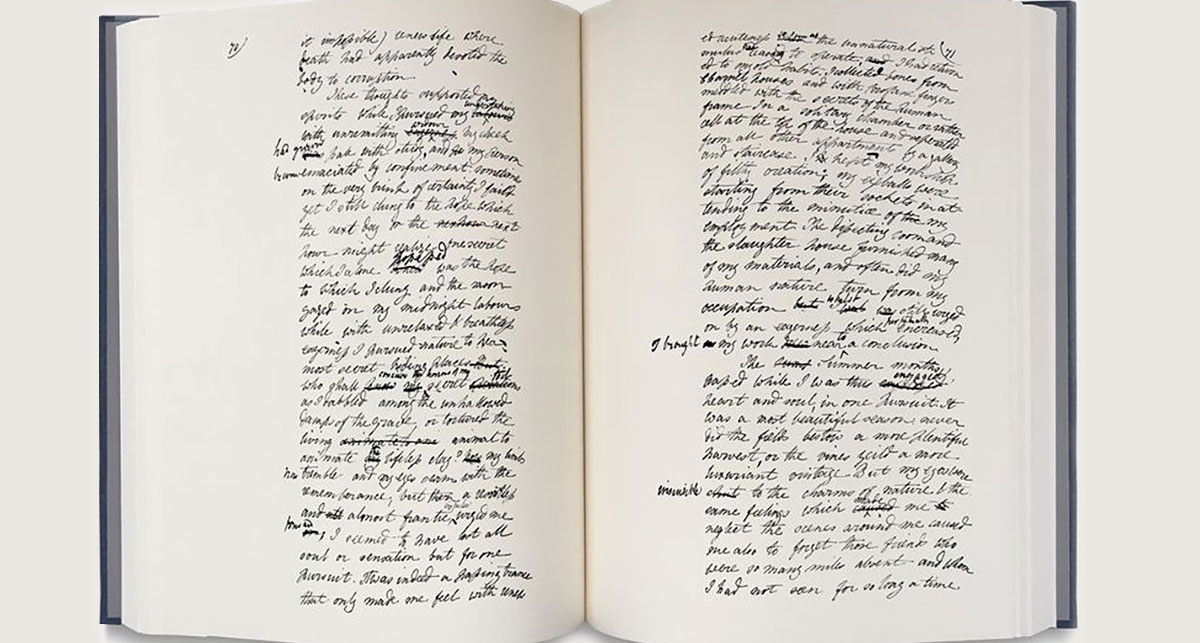 70
it impossible) renew life where
death had apparently devoted the
body to corruption.
These thoughts supported my
spirits while I pursued my undertaking
with unremitting ardour my cheek
had grown pale with study, and my person
become emaciated by confinement. sometimes
on the very brink of certainty I failed
yet I still clung to the hope which
the next day or the next
hour might realize. One secret
which I alone possessed was the hope
to which I clung and the moon
gazed on my midnight labours
while with unrelaxed & breathless
eagerness I pursued nature to her
most secret hiding places.
who shall conceive the horrors of my secret toil
as I dabbled among the unhallowed
damps of the grave, or tortured the
living animal to
animate lifeless clay? my limbs
now tremble and my eyes swim with the
remembrance; but then a resistless
and almost frantic impulse urged me
forward; I seemed to have lost all
soul or sensation but for one
pursuit. It was indeed a passing trance
that only made me feel with renew
71
ed acuteness the unnatural sti
mulus ceasing to operate, I had return
ed to my old habits. I collected bones from
charnel houses and with profane fingers
meddled with the secrets of the human
frame. In a solitary chamber or rather
cell at the top of the house and seperated
from all other appartments by a gallery
and staircase. I kept my workshop
of filthy creation; my eyeballs were
starting from their sockets in at
tending to the minutiæ of my
employment. The dissecting room and
the slaughter house furnished many
of my materials, and often did my
human nature turn from my
occupation whilst still urged
on by an eagerness which perpetually encreased
I brought my work near to a conclusion
The Summer months
passed while I was thus engaged
heart and soul, in one pursuit. It
was a most beautiful season: never
did the fields bestow a more plentiful
harvest, or the vines yeild a more
luxuriant vintage. But my eyes were
insensible to the charms of nature & the
same feelings which made me
neglect the scenes around me caused
me also to forget those friends who
were so many miles absent and whom
I had not seen for so long a time